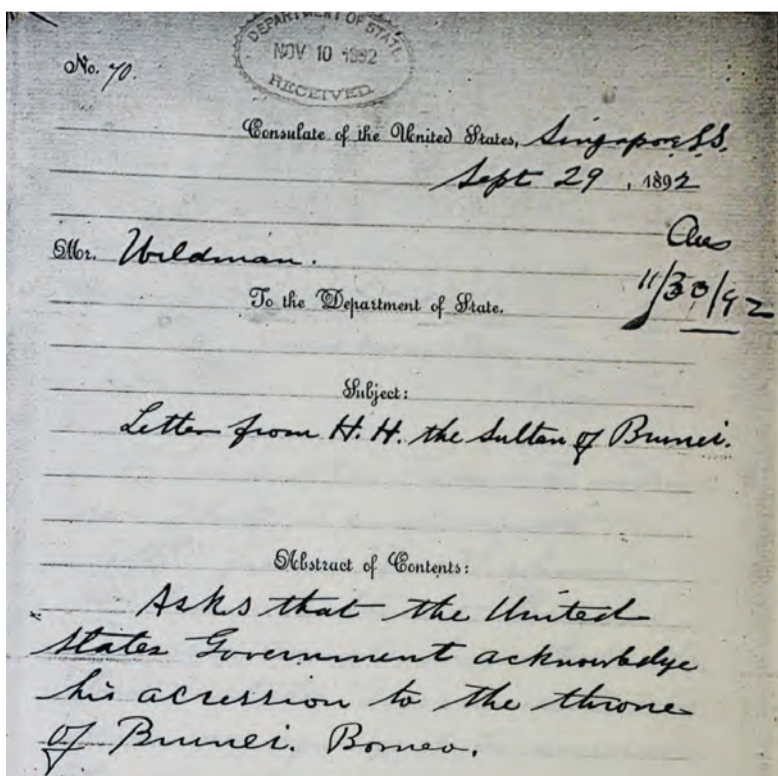 DEPARTMENT OF STATE
NOV 10 1892
RECEIVED
No. 70.
Consulate of the United States, Singapore, S.S.
Sept 29, 1892
Ans
11/30/92
Mr. Wildman.
To the Department of State.
Subject:
Letter from H. H. the Sultan of Brunei.
Abstract of Contents:
Asks that the United
States Government acknowledge
his accession to the throne
of Brunei. Borneo.